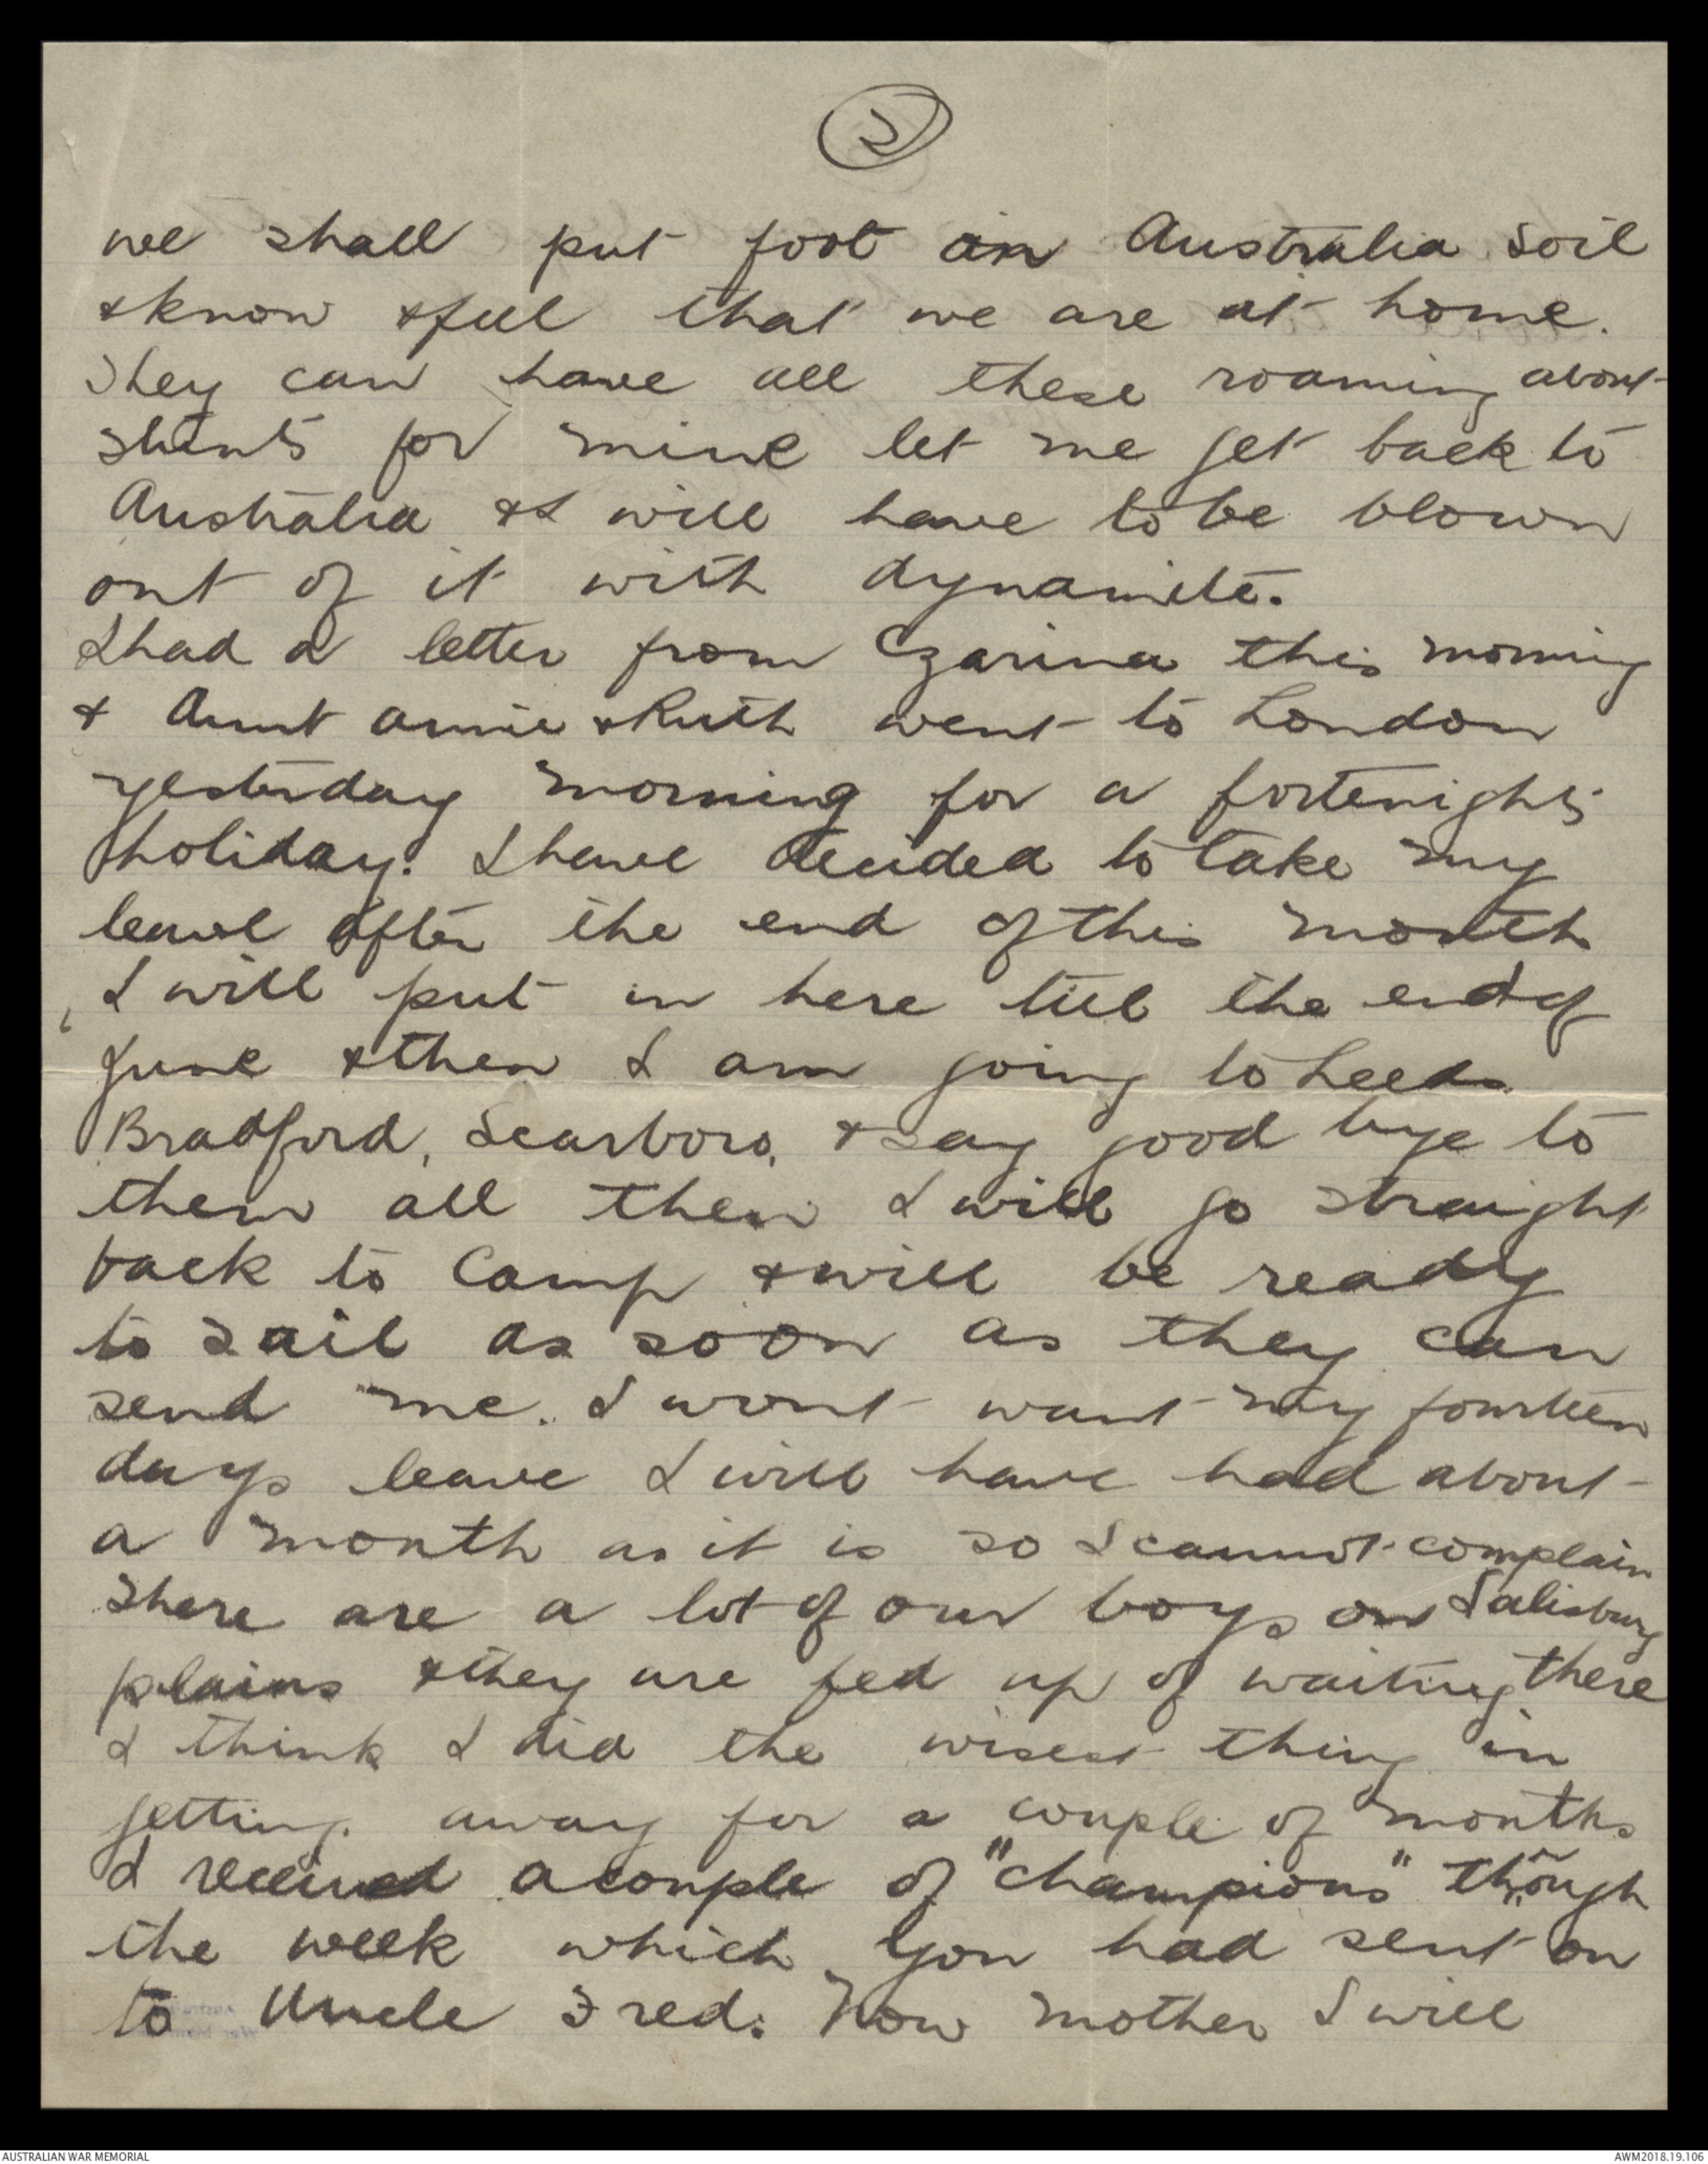 2
we shall put foot on Australia soil
& know & feel that we are at home.
They can have all these roaming about
stunts for mine let me get back to
Australia & I will have to be blown
out of it with dynamite.
I had a letter from Czarina this morning
& Aunt Annie & Ruth went to London
yesterday morning for a fortenights
holiday. I have decided to take my
leave after the end of this month
I will put in here till the end of
June & then I am going to Leeds
Bradford, Scarboro, & say good bye to
them all then I will go straight
back to Camp & will be ready
to sail as soon as they can
send me. I wont want my fourteen
days leave I will have had about
a month as it is so I cannot complain
There are a lot of our boys on Salisbury
plains & they are fed up of waiting there
I think I did the wisest thing in
getting away for a couple of months
I received a couple of "champions" though
the week which you had sent on
to Uncle Fred. Now mother I will
AUSTRALIAN WAR MEMORIAL
AWM2018.19.106